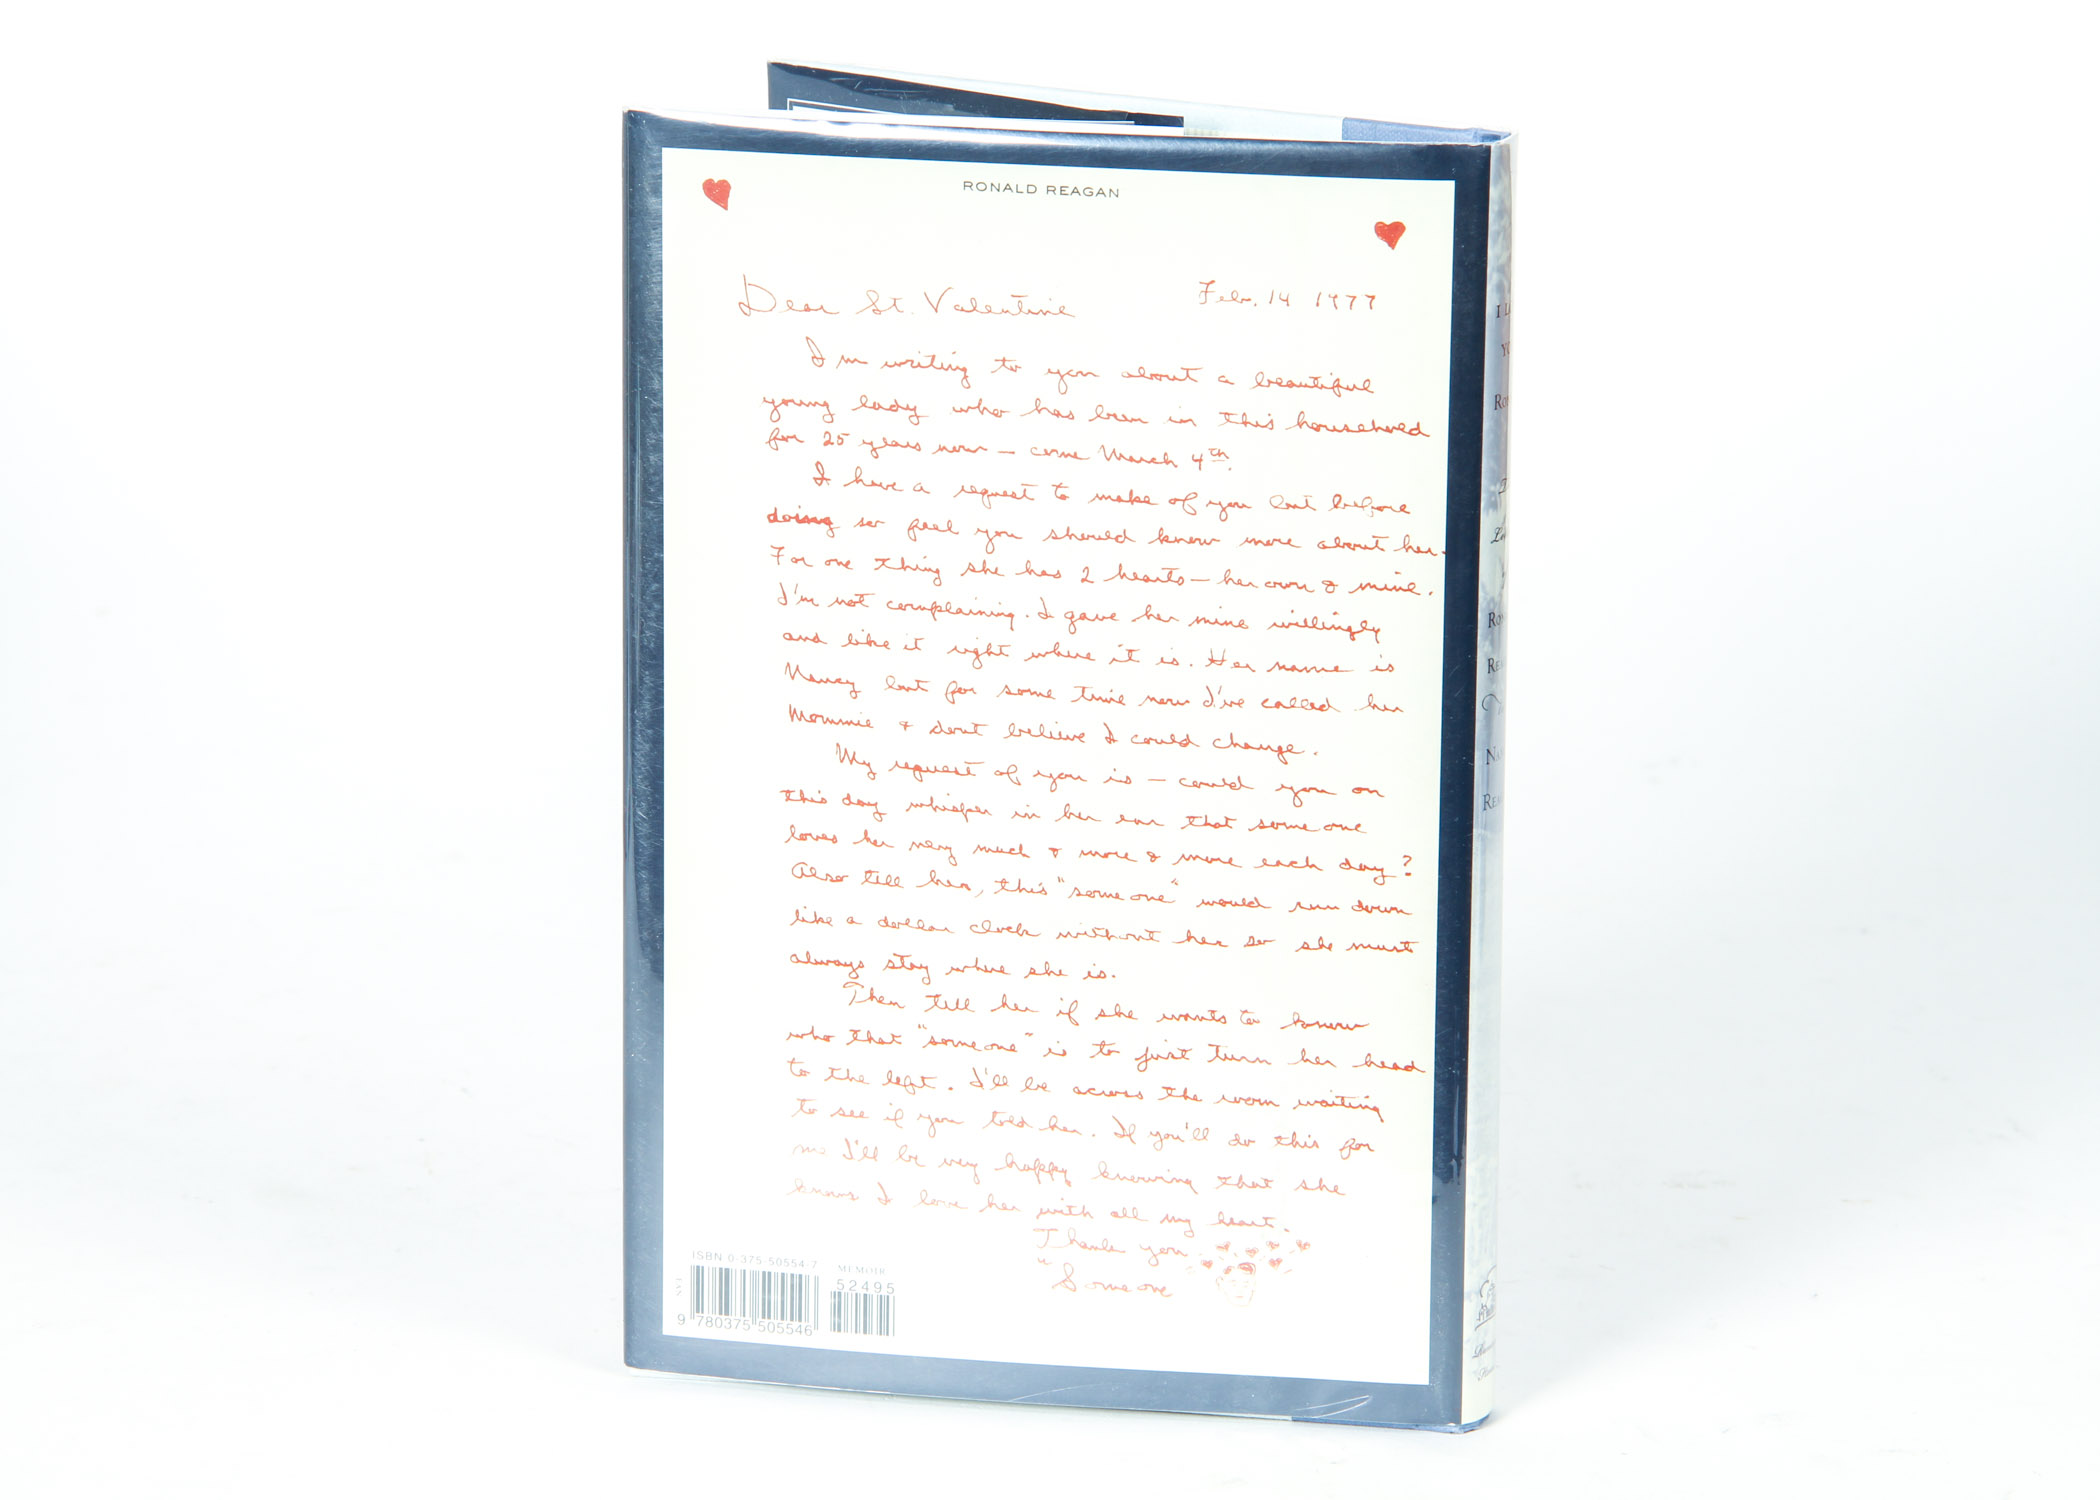 RONALD REAGAN
Dear St. Valentine
Feb. 14 1977
I'm writing to you about a beautiful
young lady who has been in this household
for 25 years now — come March 4th.
I have a request to make of you but before
doing so feel you should know more about her.
For one thing she has 2 hearts — her own & mine.
I'm not complaining. I gave her mine willingly
and like it right where it is. Her name is
Nancy but for some time now I've called her
Mommie & dont believe I could change.
My request of you is — could you on
this day whisper in her ear that some one
loves her very much & more & more each day?
Also tell her, this "some one" would run down
like a dollar clock without her so she must
always stay where she is.
Then tell her if she wants to know
who that "some one" is to just turn her head
to the left. I'll be across the room waiting
to see if you told her. If you'll do this for
me I'll be very happy knowing that she
knows I love her with all my heart.
Thank you
"Some one
ISBN 0-375-50554-7
MEMOIR
52495
EAN
9 780375 505546
I L
YO
RON
RON
REA
NAN
REA